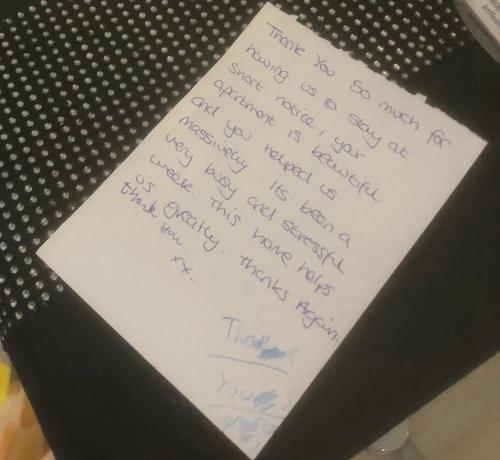 Thank You so much for
having us to stay at
short notice, your
apartment is beautiful
and you helped us
massively Its been a
very busy and stressful
week. This home helps
us greatly. Thanks Again.
thank you.
xx.
Thank
You